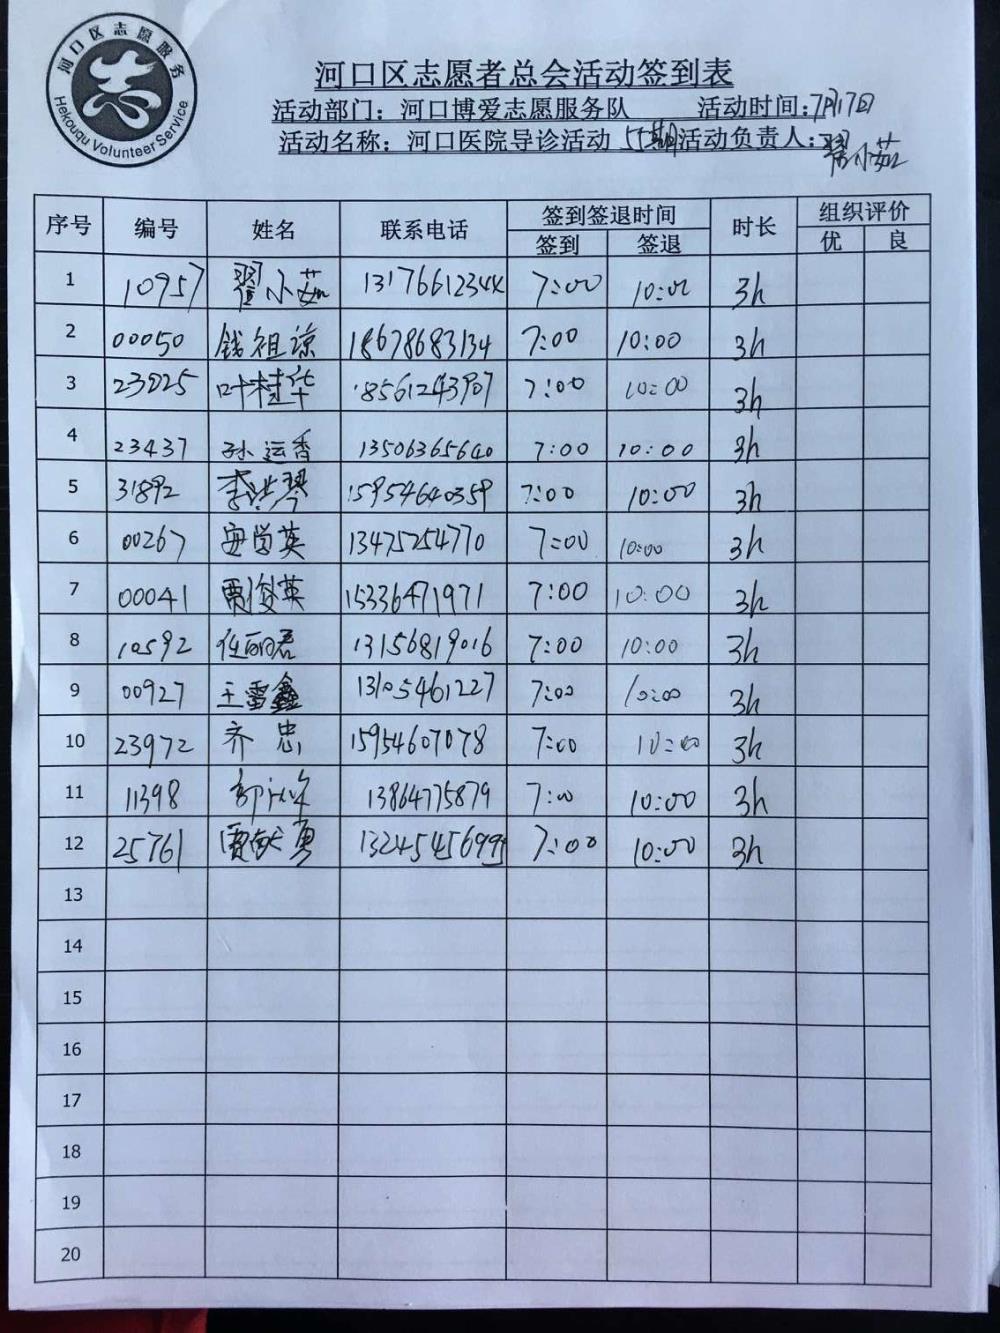 河口区志愿服务
志
Hekouqu Volunteer Service
河口区志愿者总会活动签到表
活动部门：河口博爱志愿服务队 活动时间：7月17日
活动名称：河口医院导诊活动 55期 活动负责人：翟小茹
序号 编号 姓名 联系电话 签到签退时间 时长 组织评价
签到 签退 优 良
1 10957 翟小茹 13176612344 7:00 10:00 3h
2 00050 钱祖谅 18678683134 7:00 10:00 3h
3 23225 叶桂华 18561243907 7:00 10:00 3h
4 23437 孙运香 13506365640 7:00 10:00 3h
5 31892 李洪琴 15954640359 7:00 10:00 3h
6 00267 安尚英 13475254770 7:00 10:00 3h
7 00041 贾俊英 15336471971 7:00 10:00 3h
8 10592 任丽君 13156819016 7:00 10:00 3h
9 00927 王雷鑫 13105461227 7:00 10:00 3h
10 23972 齐忠 15954607078 7:00 10:00 3h
11 11398 13864775879 7:00 10:00 3h
12 25761 贾献勇 7:00 10:00 3h
13
14
15
16
17
18
19
20